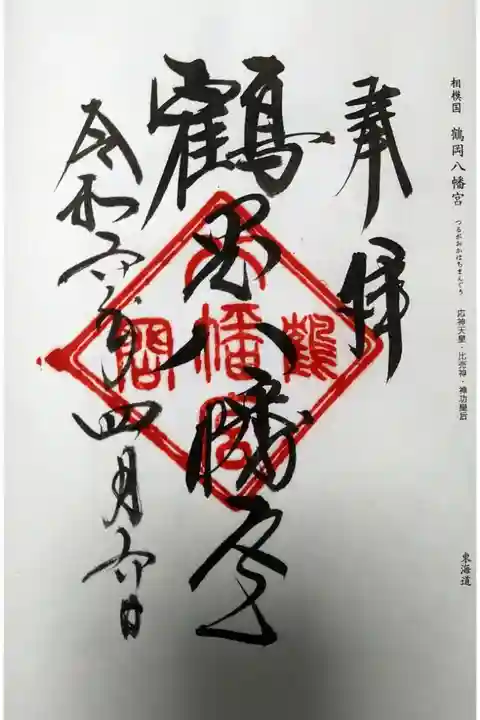 相模国 鶴岡八幡宮 つるがおかはちまんぐう 応神天皇・比売神・神功皇后
東海道
奉拝
鶴岡八幡宮
令和六年四月六日
鶴
八幡宮
岡